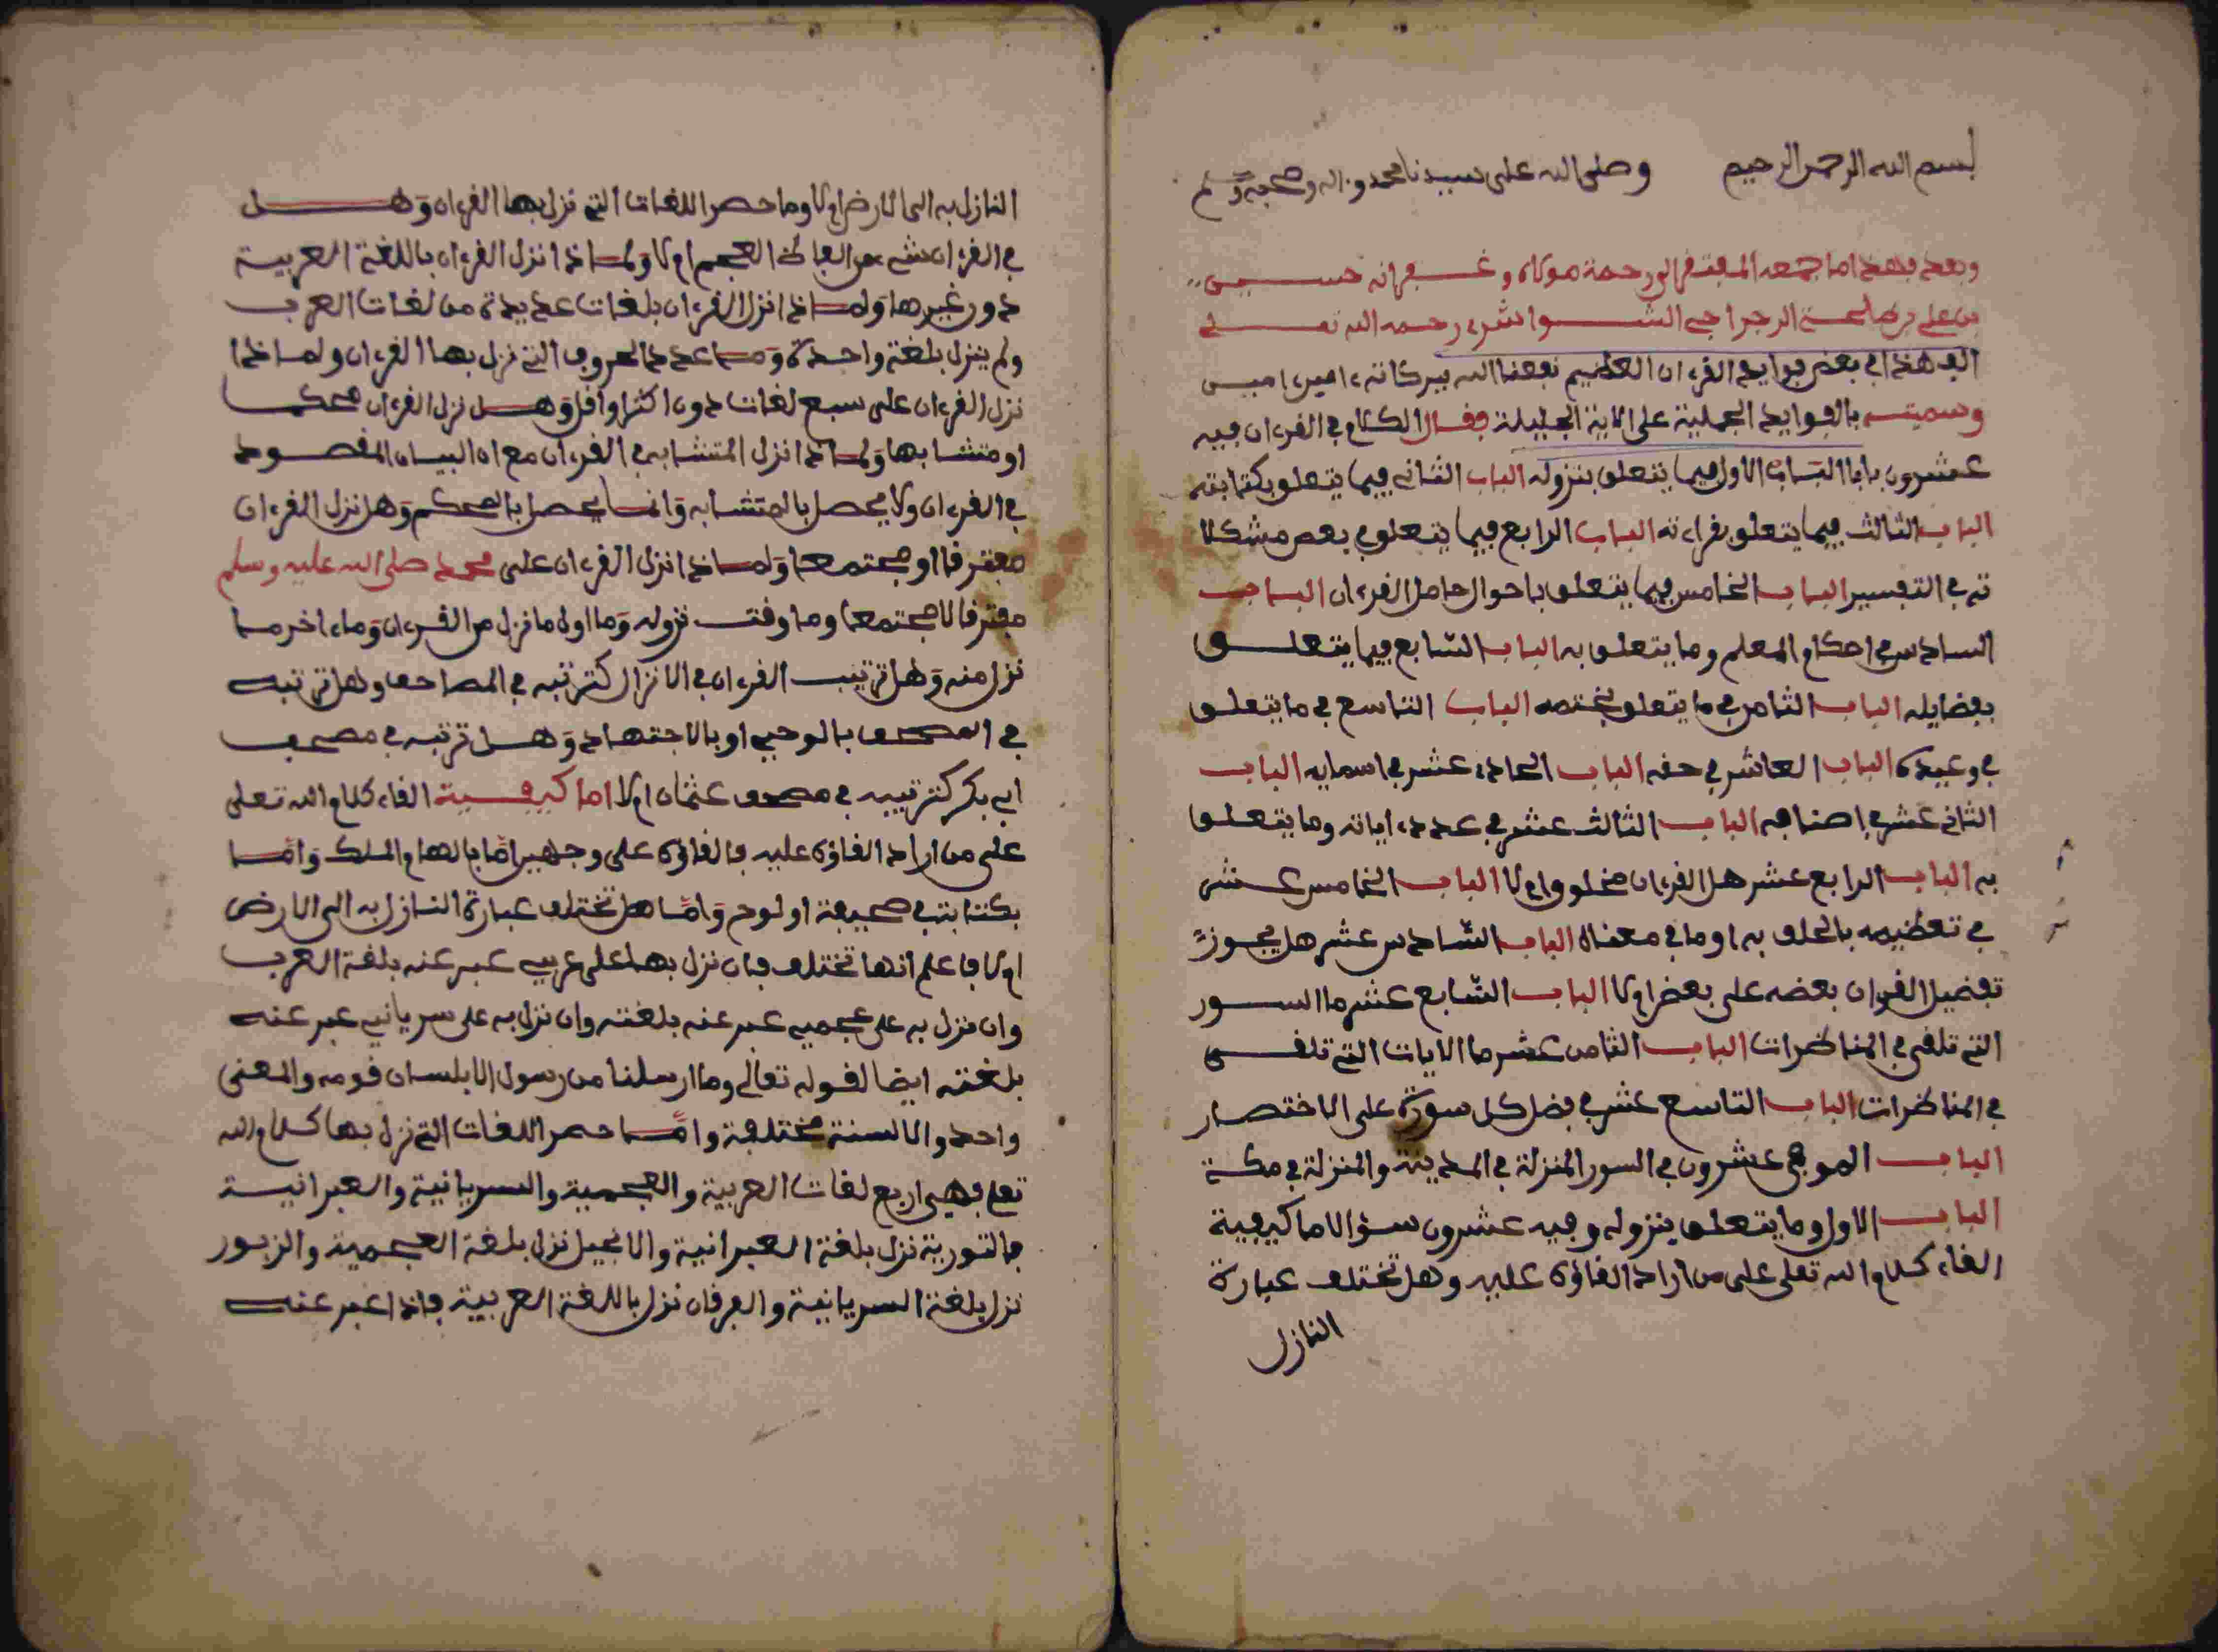 بسم الله الرحمن الرحيم وصلى الله على سيدنا محمد وءاله وصحبه وسلم
وبعد فهذا ما جمعه المفتقر الى رحمة مولاه وغفرانه حسين
بن علي بن طلحة الرجراجي الشوشاوي رحمه الله تعلى
الف هذا في بعض فوايد القرءان العظيم نفعنا الله ببركاته ءامين امين
وسميته بالفوايد الجميلة على الاية الجليلة فقال الكلام في القرءان فيه
عشرون بابا الباب الاول فيما يتعلق بنزوله الباب الثاني فيما يتعلق بكتابته
الباب الثالث فيما يتعلق بقراءته الباب الرابع فيما يتعلق ببعض مشكلا
ته في التفسير الباب الخامس فيما يتعلق باحوال حامل القرءان الباب
السادس في احكام المعلم وما يتعلق به الباب السابع فيما يتعلق
بفضايله الباب الثامن في ما يتعلق بختمه الباب التاسع في ما يتعلق
في وعيده الباب العاشر في حقه الباب الحادي عشر في اسمايه الباب
الثاني عشر في اصنافه الباب الثالث عشر في عدد ءاياته وما يتعلق
به الباب الرابع عشر هل القرءان مخلوق ام لا الباب الخامس عشر
في تعظيمه بالحلف به او ما في معناه الباب السادس عشر هل يجوز
تفضيل القرءان بعضه على بعض ام لا الباب السابع عشر ما السور
التي تلقى في المناظرات الباب الثامن عشر ما الايات التي تلقى
في المناظرات الباب التاسع عشر في فضل كل سورة على الاختصار
الباب الموفي عشرون في السور المنزلة في المدينة والمنزلة في مكة
الباب الاول وما يتعلق بنزوله وفيه عشرون سؤالا ما كيفية
القاء كلام الله تعلى على من اراد القاؤه عليه وهل تختلف عبارة
النازل
النازل به الى الارض ام لا وما حصر اللغات التي نزل بها القرءان وهل
في القرءان شيء من الفاظ العجم ام لا ولماذا نزل القرءان باللغة العربية
دون غيرها ولماذا انزل القرءان بلغات عديدة من لغات العرب
ولم ينزل بلغة واحدة وما عدد الحروف التي نزل بها القرءان ولماذا
نزل القرءان على سبع لغات دون اكثر او اقل وهل نزل القرءان محكما
او متشابها ولماذا انزل المتشابه في القرءان مع ان البيان المقصود
في القرءان ولا يحصل بالمتشابه وانما يحصل بالمحكم وهل نزل القرءان
مفترقا او مجتمعا ولماذا انزل القرءان على محمد صلى الله عليه وسلم
مفترقا لا مجتمعا وما وقت نزوله وما اول ما نزل من القرءان وما ءاخر ما
نزل منه وهل ترتيب القرءان في الانزال كترتبه في المصاحف وهل ترتبه
في المصحف بالوحي او بالاجتهاد وهل ترتبه في مصحف
ابي بكر كترتيبه في مصحف عثمان ام لا اما كيفية القاء كلام الله تعلى
على من اراد القاؤه عليه فالقاؤه على وجهين اما بالهام الملك واما
بكتابته في صحيفة او لوح واما هل تختلف عبارة النازل به الى الارض
ام لا فاعلم انها تختلف فان نزل بها على عربي عبر عنه بلغة العرب
وان نزل به على عجمي عبر عنه بلغته وان نزل به على سرياني عبر عنه
بلغته ايضا لقوله تعالى وما ارسلنا من رسول الا بلسان قومه والمعنى
واحد والالسنة مختلفة واما حصر اللغات التي نزل بها كلام الله
تعلى فهي اربع لغات العربية والعجمية والسريانية والعبرانية
فالتورية نزل بلغة العبرانية والانجيل نزل بلغة العجمية والزبور
نزل بلغة السريانية والفرقان نزل باللغة العربية فاذا عبر عنه